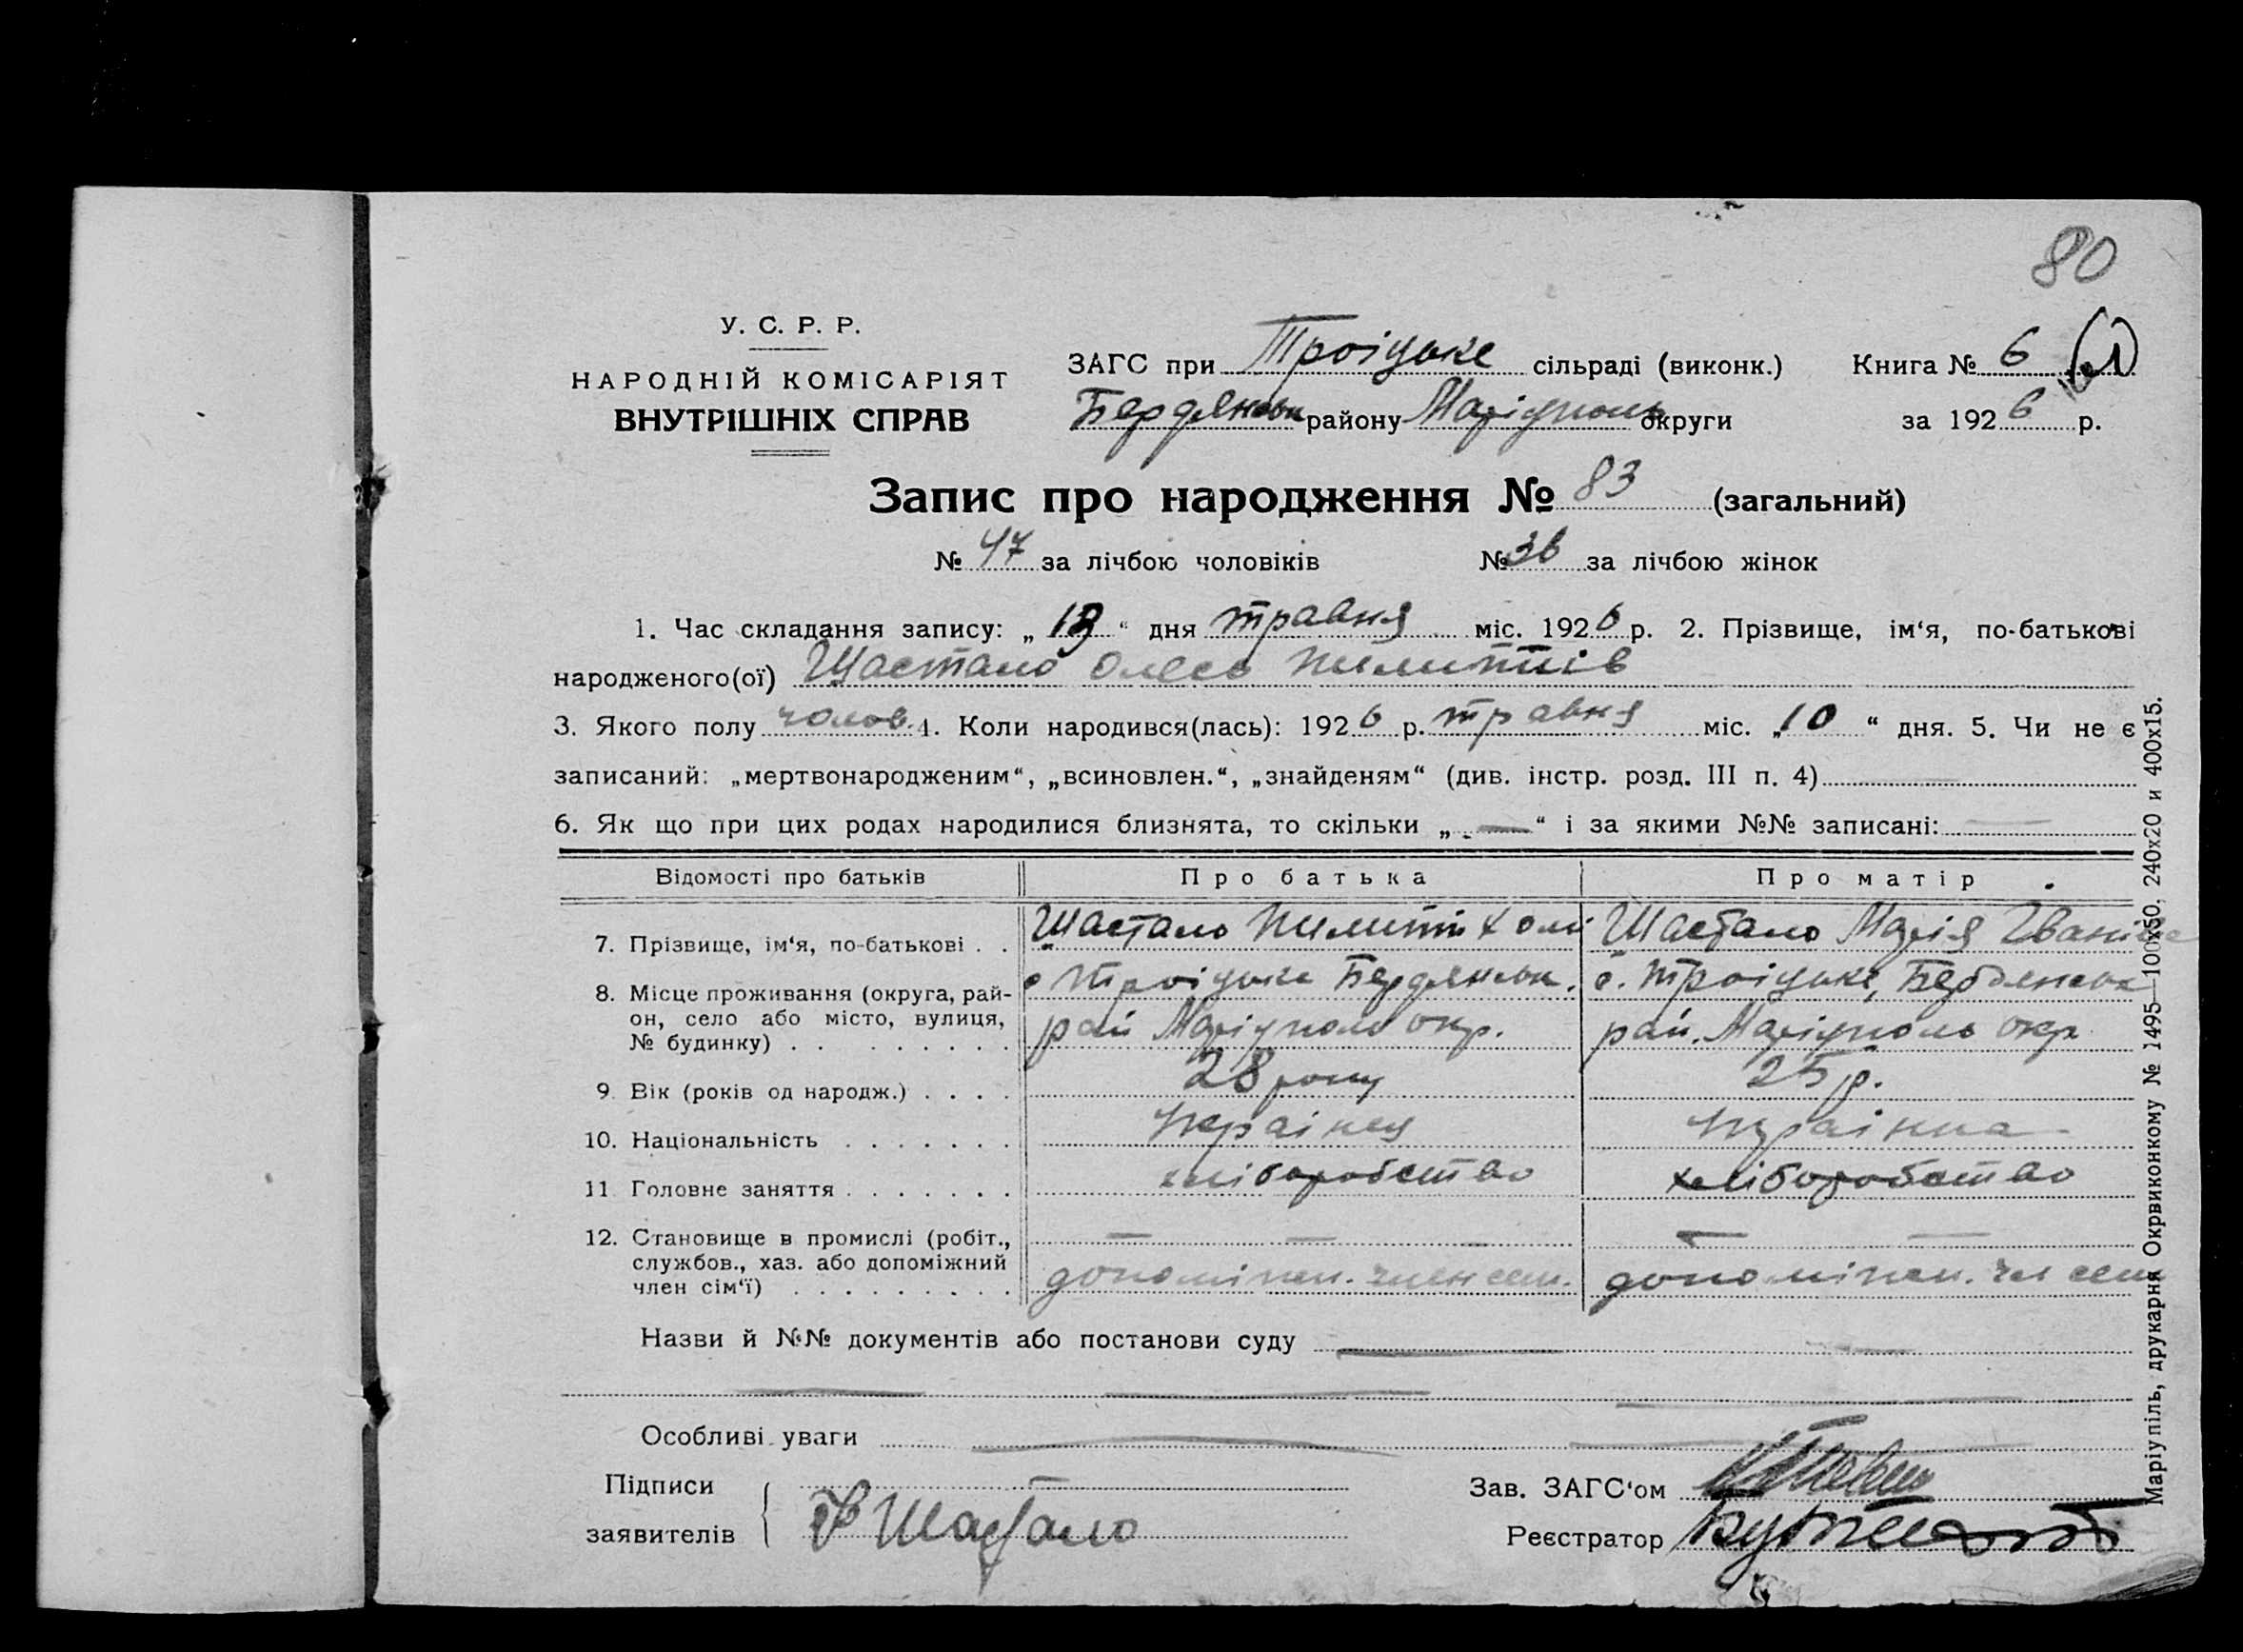 80
У. С. Р. Р.
НАРОДНІЙ КОМІСАРІЯТ
ВНУТРІШНІХ СПРАВ
ЗАГС при Троіцьке сільраді (виконк.) Книга № 6
Бердянськ району Маріуполь округи за 1926 р.
Запис про народження № 83 (загальний)
№ 47 за лічбою чоловіків № 36 за лічбою жінок
1. Час складання запису: „ 13 “ дня травня міс. 1926 р. 2. Прізвище, ім‘я, по-батькові
народженого(ої) Щастало Олесь Пилипів
3. Якого полу чолов. 4. Коли народився(лась): 1926 р. травня міс. „ 10 “ дня. 5. Чи не є
записаний: „мертвонародженим“, „всиновлен.“, „знайденям“ (див. інстр. розд. III п. 4)
6. Як що при цих родах народилися близнята, то скільки „ — “ і за якими №№ записані: —
Відомості про батьків Про батька Про матір
7. Прізвище, ім‘я, по-батькові . . Щастало Пилип Хомі Щастало Марія Іванівна
8. Місце проживання (округа, рай- с Троіцьке Бердянськ. с. Троіцьке, Бердянськ
он, село або місто, вулиця, рай Маріуполь окр. рай. Маріуполь окр
№ будинку)
9. Вік (років од народж.) . . . . 28 року 25 р.
10. Національність . . . . . . . Українец Українка
11. Головне заняття . . . . . . . хліборобство хліборобство
12. Становище в промислі (робіт., — — — — —
службов., хаз. або допоміжний
член сім‘ї) допоміжн. член сем. допоміжн. чл сем
Назви й №№ документів або постанови суду —
Особливі уваги —
Підписи
заявителів Щастало
Зав. ЗАГС‘ом
Реєстратор
Маріупіль, друкарня Окрвиконкому № 1495—100х50. 240х20 и 400х15.